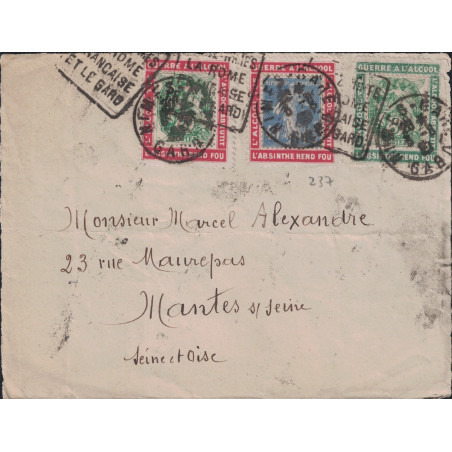 LA ROME
FRANÇAISE
ET LE GARD
GUERRE A L'ALCOOL
L'ABSINTHE REND FOU
GUERRE A L'ALCOOL
L'ABSINTHE REND FOU
GUERRE A L'ALCOOL
L'ABSINTHE REND FOU
NIMES
GARD
237
Monsieur Marcel Alexandre
23 rue Maurepas
Mantes s/ Seine
Seine et Oise